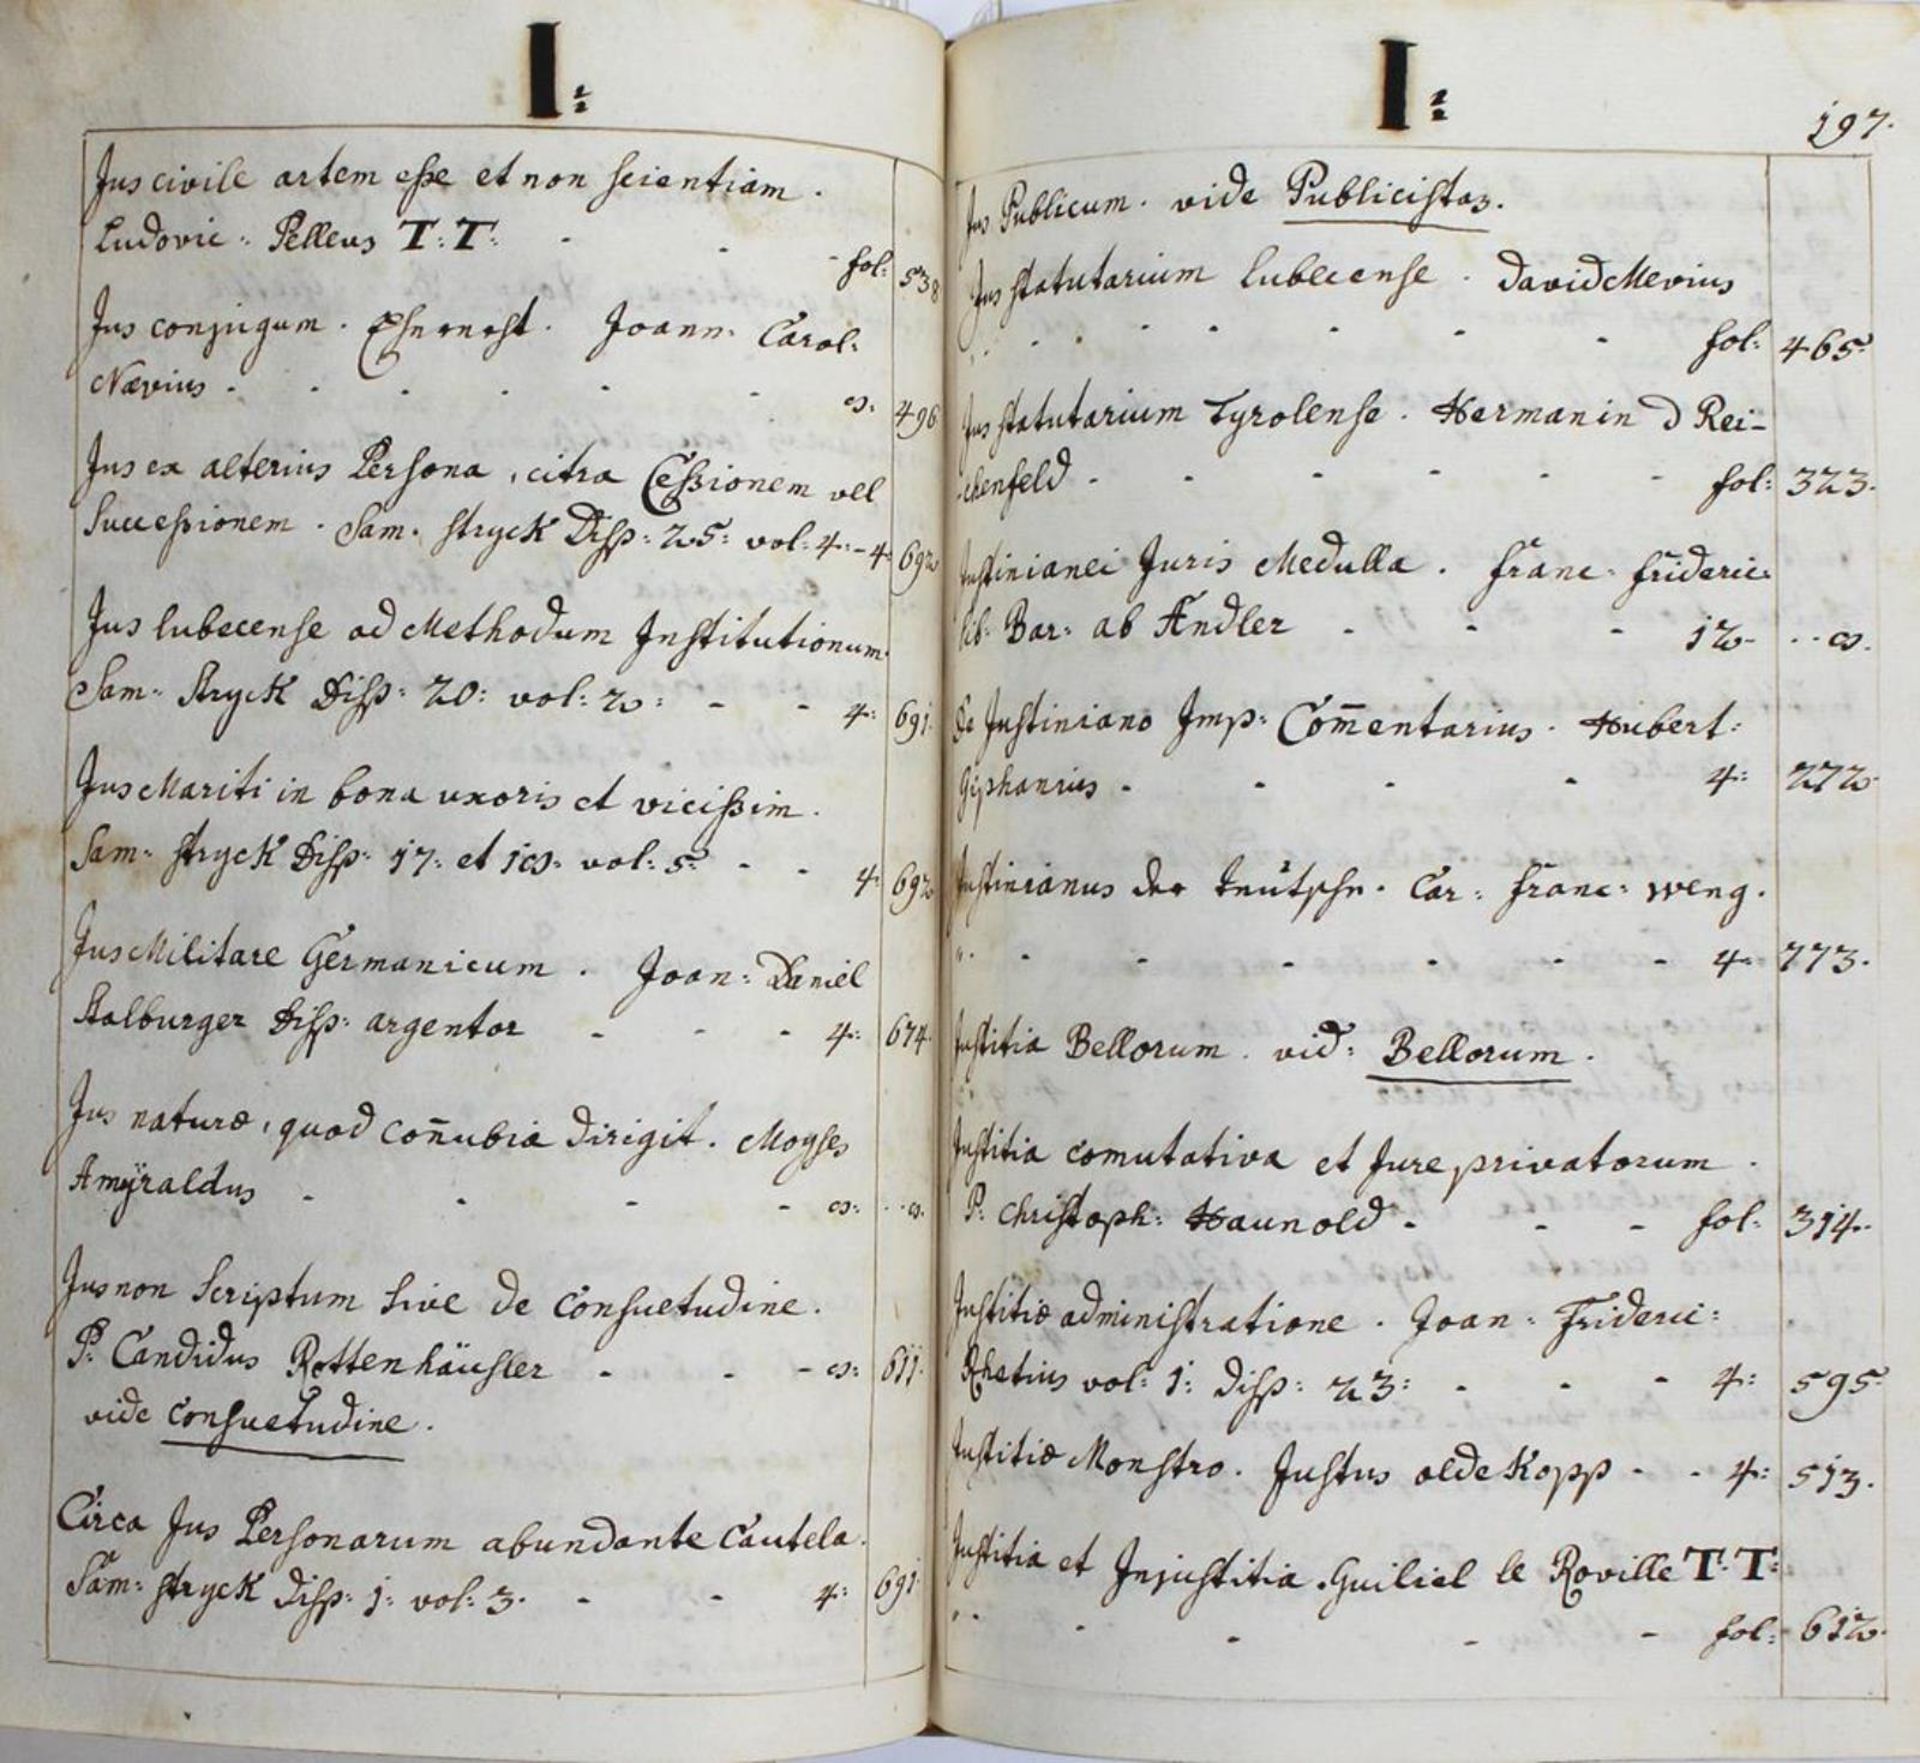 I:
Jus civile artem esse et non scientiam.
Ludovic: Pelleus T: T: - - - fol: 538
Jus conjugum. Eherecht. Joann: Carol:
Nævius - - - - - - 8: 496
Jus ex alterius Persona, citra Cessionem vel
Successionem. Sam: Stryck Disp: 25: vol: 4: - 4: 692
Jus lubecense ad Methodum Institutionum.
Sam: Stryck Disp: 20: vol: 2: - - 4: 691.
Jus Mariti in bona uxoris et vicissim.
Sam: Stryck Disp: 17: et 18: vol: 5: - - 4: 692
Jus Militare Germanicum. Joan: Daniel
Stalburger Disp: argentor - - - 4: 674.
Jus naturæ, quod coñubia dirigit. Moyses
Amÿraldus - - - - 8: . . 8.
Jus non Scriptum sive de Consuetudine.
P: Candidus Rottenhäusler - - - 8: 611.
vide Consuetudine.
Circa Jus Personarum abundante Cautela.
Sam: Stryck Disp: 1: vol: 3. - - 4: 691.
I:
197.
Jus Publicum. vide Publicistas.
Jus statutarium lubecense. David Mevius
- - - - - - fol: 465.
Jus statutarium Tyrolense. Herman in d Rei-
chenfeld - - - - - - fol: 323.
Justinianei Juris Medulla. Franc: Frideric:
lib: Bar: ab Andler - - - 12. . . 8.
De Justiniano Imp: Com̄entarius. Hubert:
Giphanius - - - - 4: 272.
Justinianus der teütsche. Car: Franc: Weng.
- - - - - - 4: 773.
Justitia Bellorum. vid: Bellorum.
Justitia comutativa et Jure privatorum.
P: Christoph: Haunold - - - fol: 314.
Justitiæ administratione. Joan: Frideric:
Rhetius vol: 1: Disp: 23: - - - 4: 595.
Justitiæ Monstro. Justus oldeKopp - - 4: 513.
Justitia et Injustitia. Guiliel le Roville T: T:
- - - - fol: 612.